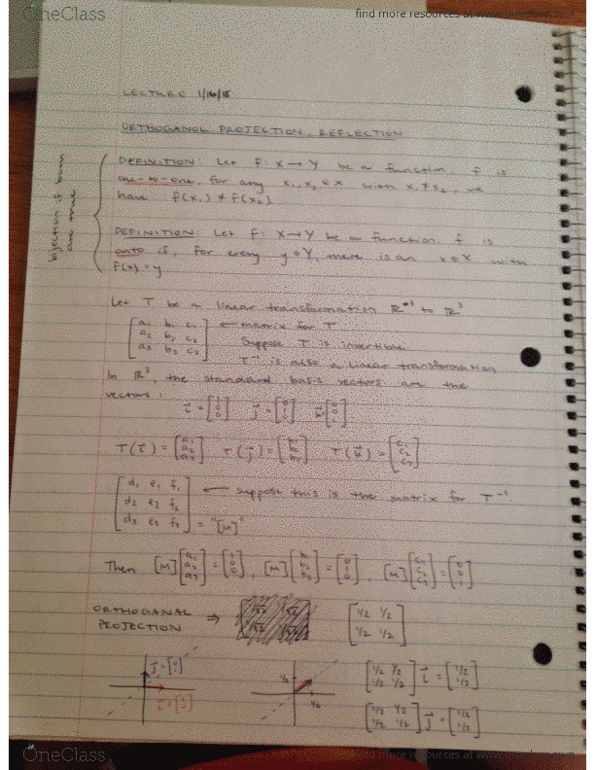 OneClass
find more resources at www.oneclass.com
LECTURE 1/16/15
ORTHOGANOL PROJECTION, REFLECTION
DEFINITION: Let f: X → Y be a function. f is
one-to-one, for any x₁, x₂ ∈ X with x₁ ≠ x₂, we
have f(x₁) ≠ f(x₂)
bijection if both
are true
DEFINITION: Let f: X → Y be a function. f is
onto if, for every y ∈ Y, there is an x ∈ X with
f(x) = y
Let T be a linear transformation ℝ³ to ℝ³
[a₁ b₁ c₁] ← matrix for T
[a₂ b₂ c₂] Suppose T is invertible
[a₃ b₃ c₃] T⁻¹ is also a linear transformation
In ℝ³, the standard basis vectors are the
vectors:
i = [1 0 0] j = [0 1 0] k [0 0 1]
T(i) = [a₁ a₂ a₃] T(j) = [b₁ b₂ b₃] T(k) = [c₁ c₂ c₃]
[d₁ e₁ f₁]
[d₂ e₂ f₂] ← suppose this is the matrix for T⁻¹
[d₃ e₃ f₃] = "[M]"
Then [M][a₁ a₂ a₃] = [1 0 0], [M][b₁ b₂ b₃] = [0 1 0], [M][c₁ c₂ c₃] = [0 0 1]
ORTHOGANAL
PROJECTION ⇒ [1/2 1/2]
[1/2 1/2]
j = [0 1]
i = [1 0]
1/2
1/2
[1/2 1/2 1/2 1/2] i = [1/2 1/2]
[1/2 1/2 1/2 1/2] j = [1/2 1/2]
OneClass
find more resources at www.oneclass.com